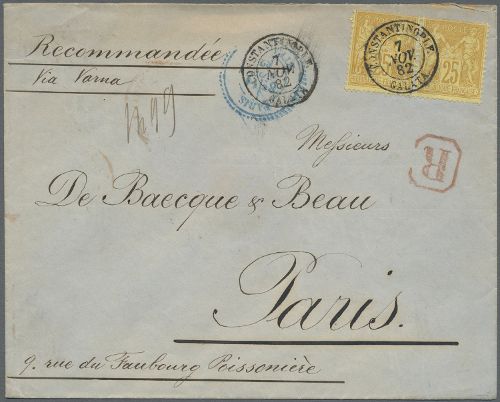 Recommandée
Via Varna
CONSTANTINOPLE
7
NOV.
82
GALATA
CONSTANTINOPLE
7
NOV.
82
GALATA
25
PARIS
R
Messieurs
De Baecque & Beau
Paris.
9. rue du Faubourg Poissonière